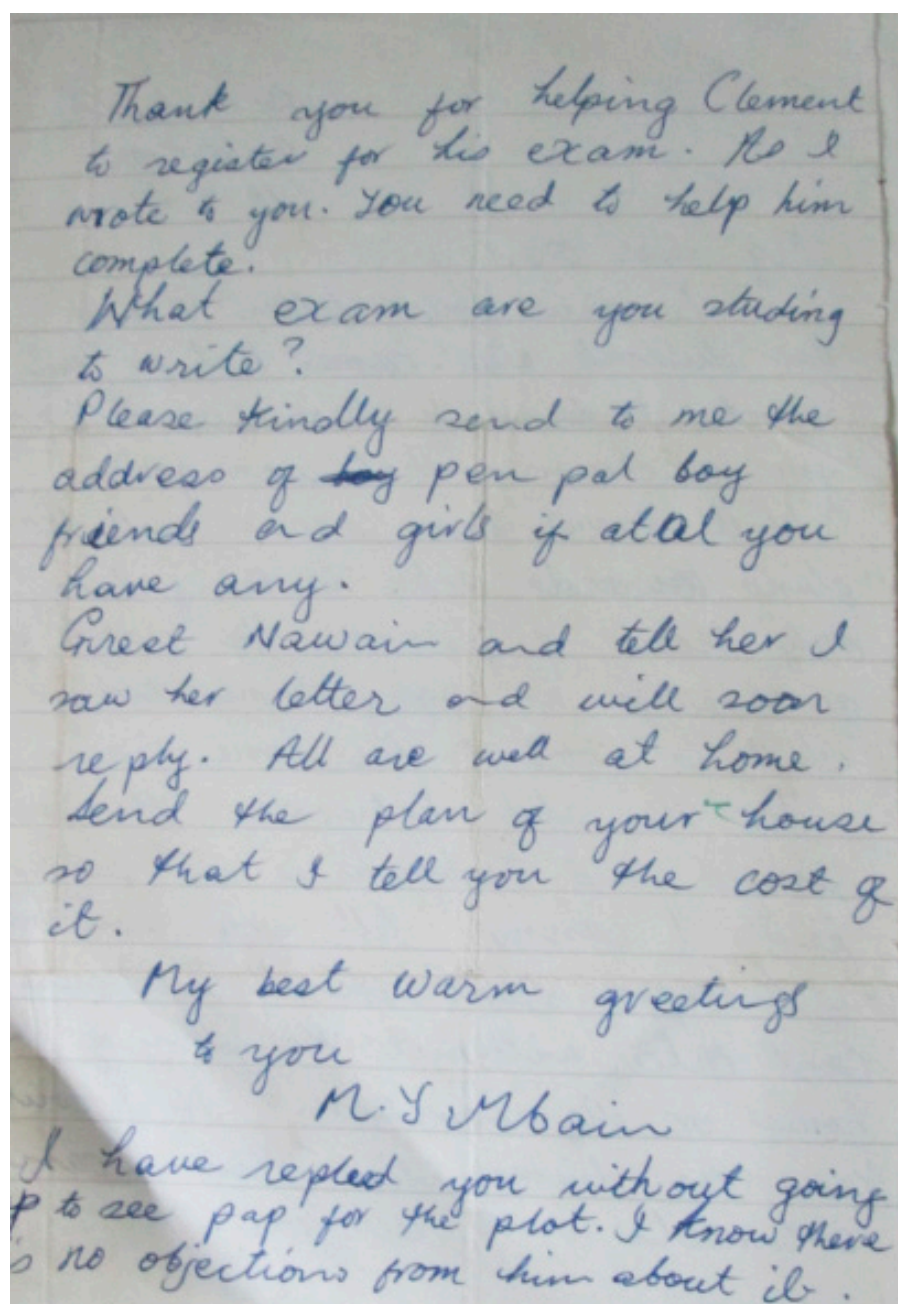 Thank you for helping Clement
to register for his exam. As I
wrote to you. You need to help him
complete.
What exam are you studing
to write?
Please kindly send to me the
address of boy pen pal boy
friends and girls if atal you
have any.
Greet Nawain and tell her I
saw her letter and will soon
reply. All are well at home.
Send the plan of your house
so that I tell you the cost of
it.
My best warm greetings
to you
M.Y Mbain
I have repled you without going
p to see pap for the plot. I know there
s no objections from him about it.